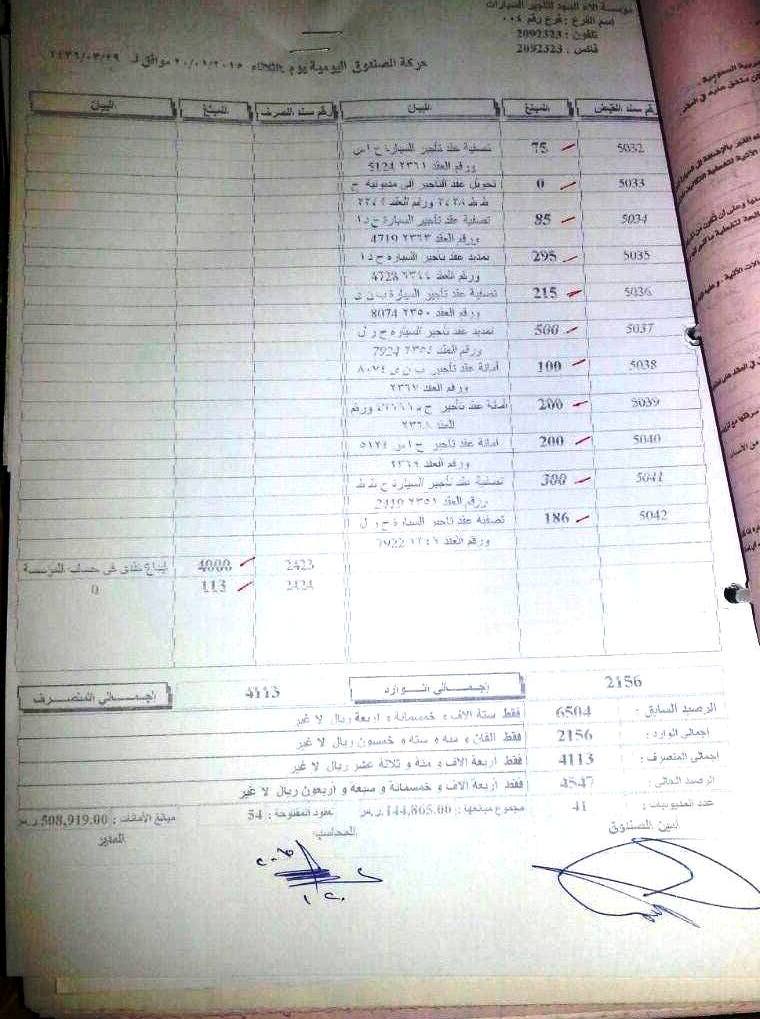 لتأجير السيارات
اسم الفرع : فرع رقم ٠٠٤
تلفون : 2092323
فاكس : 2092323
حركة الصندوق اليومية يوم الثلاثاء ٢٠/٠١/٢٠١٥ موافق لـ ٢٩/٠٣/١٤٣٦
رقم سند القبض المبلغ البيان رقم سند الصرف المبلغ البيان
5032 75 تصفية عقد تأجير السيارة ح ا س
ورقم العقد ٢٣٦١ 5124
5033 0 تحويل عقد التأجير الى مديونية ح
ط ط ورقم العقد
5034 85 تصفية عقد تأجير السيارة ح د ا
ورقم العقد ٢٣٦٣ 4719
5035 295 تمديد عقد تأجير السيارة ح د ا
ورقم العقد ٢٣٤٤ 4728
5036 215 تصفية عقد تأجير السيارة ب ن ى
ورقم العقد ٢٣٥٠ 8074
5037 500 تمديد عقد تأجير السيارة ح ر ل
ورقم العقد ٢٣٥٤ 7924
5038 100 أمانة عقد تأجير ب ن ى ٨٠٧٤
ورقم العقد ٢٣٦٧
5039 200 أمانة عقد تأجير ح ورقم
العقد ٢٣٦٨
5040 200 أمانة عقد تأجير ح ا س ٥١٢٤
ورقم العقد ٢٣٦٩
5041 300 تصفية عقد تأجير السيارة ح ط ط
ورقم العقد ٢٣٥١ 2419
5042 186 تصفية عقد تأجير السيارة ح ر ل
ورقم العقد 7922
2423 4000 إيداع نقدى فى حساب المؤسسة
2424 113 0
2156 إجمالى الوارد 4113 إجمالى المنصرف
الرصيد السابق : 6504 فقط ستة الاف و خمسمائة و اربعة ريال لا غير
إجمالى الوارد : 2156 فقط الفان و مئه و سته و خمسون ريال لا غير
إجمالى المنصرف : 4113 فقط أربعة الاف و مئة و ثلاثة عشر ريال لا غير
الرصيد الحالى : 4547 فقط أربعة الاف و خمسمائة و سبعه و اربعون ريال لا غير
عدد المديونيات : 41 مجموع مبالغها : 144,865.00 ر.س عقود المفتوحة : 54 مبالغ الأمانات : 508,919.00 ر.س
أمين الصندوق المحاسب المدير